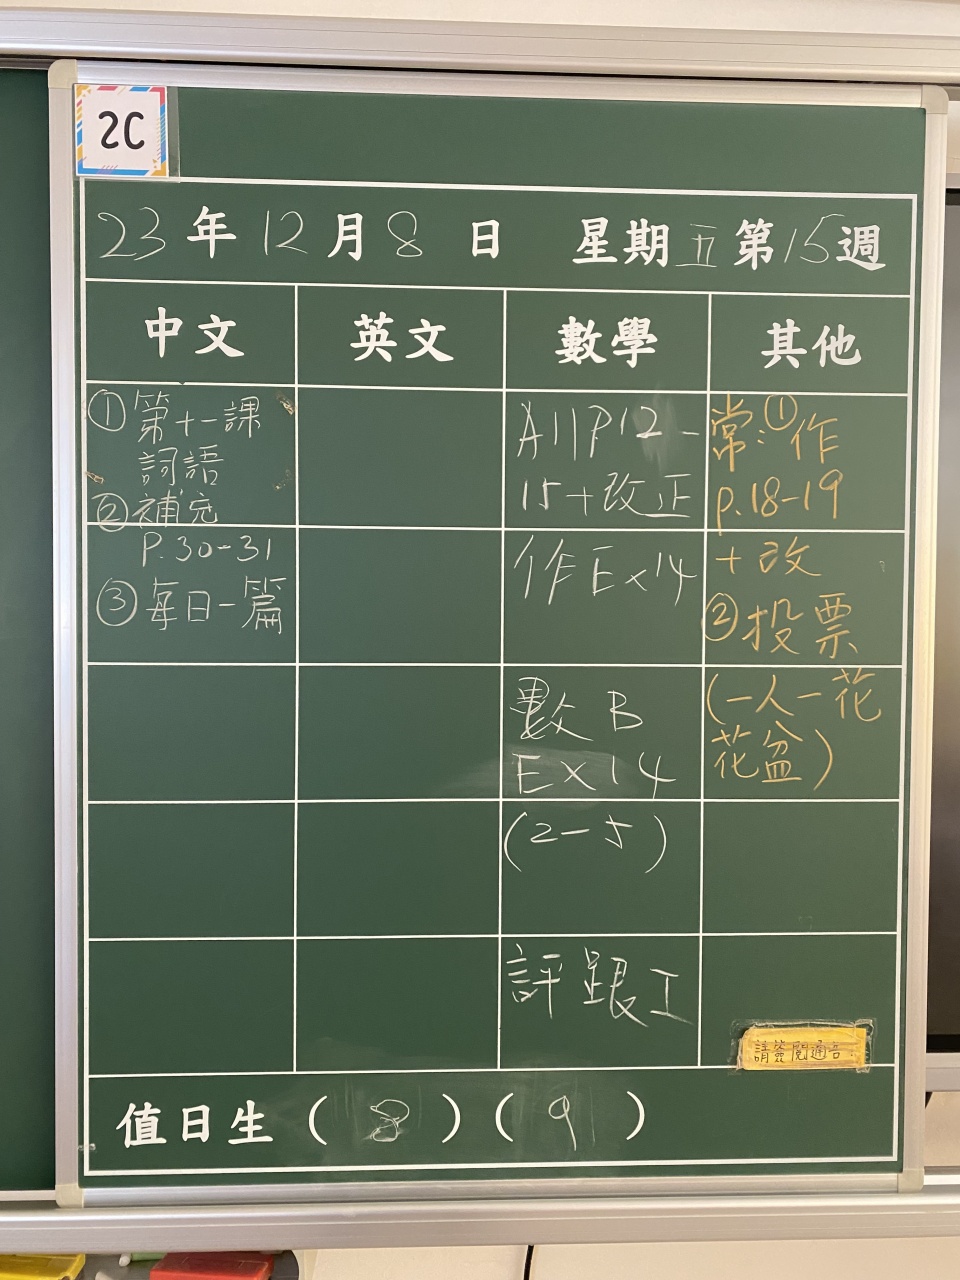 2C
23年12月8日 星期五第15週
中文 英文 數學 其他
①第十一課
詞語
②補充
P.30-31
③每日一篇
A11P12-
15+改正
作Ex14
數B
EX14
(2-5)
評跟工
常:①作
p.18-19
+改
②投票
(一人一花
花盆)
請簽閱通告
值日生(8)(9)